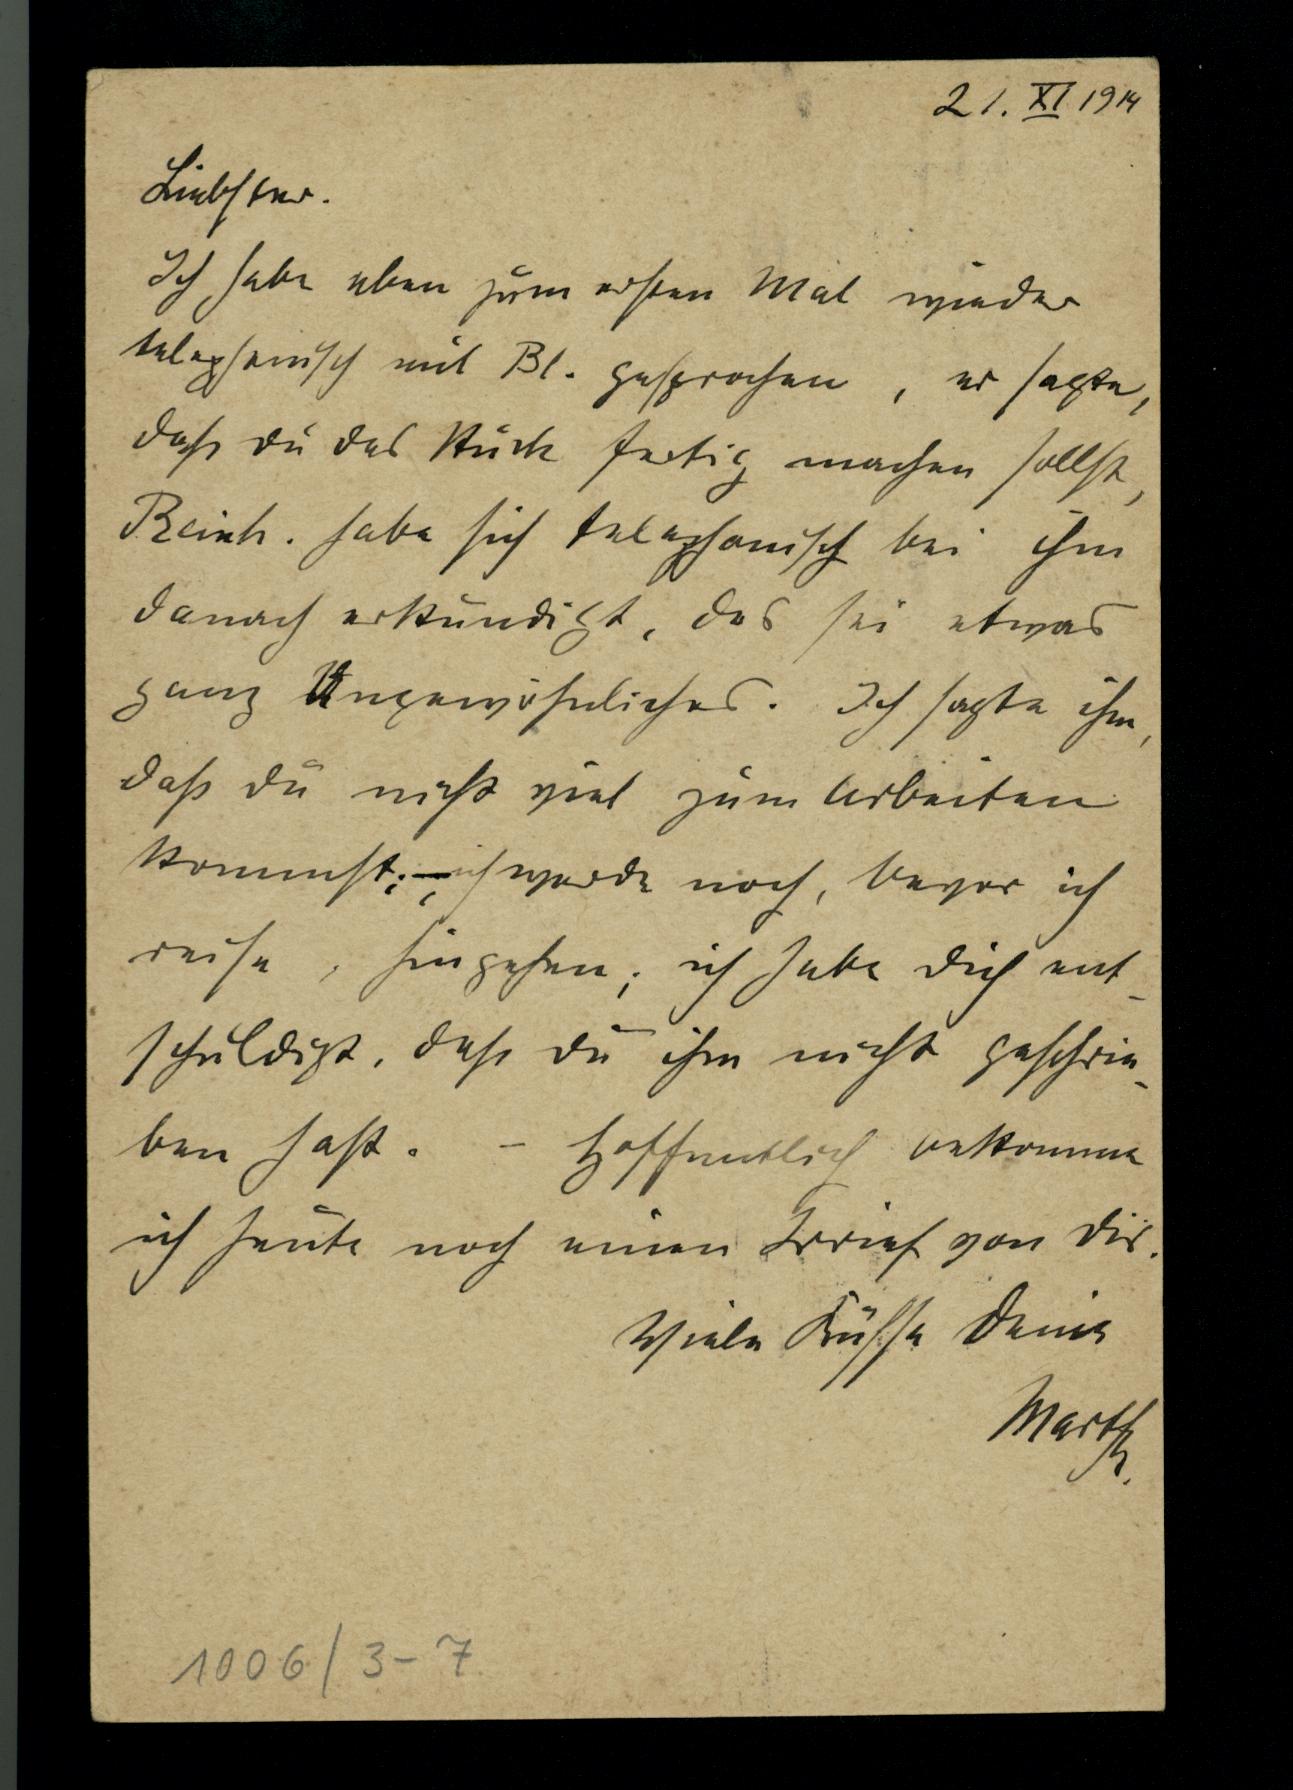 21. XI 1914
Liebster.
Ich habe eben zum ersten Mal wieder
telephonisch mit Bl. gesprochen, er sagte,
dass du das Stück fertig machen sollst,
Reinh. habe sich telephonisch bei ihm
danach erkundigt, das sei etwas
ganz Ungewöhnliches. Ich sagte ihm,
daß du nicht viel zum Arbeiten
kommst; ich werde noch, bevor ich
reise, hingehen; ich habe dich ent-
schuldigt, dass du ihm nicht geschrie-
ben hast. - Hoffentlich bekomme
ich heute noch einen Brief von dir.
Viele Küsse Deine
Marth.
1006/3-7